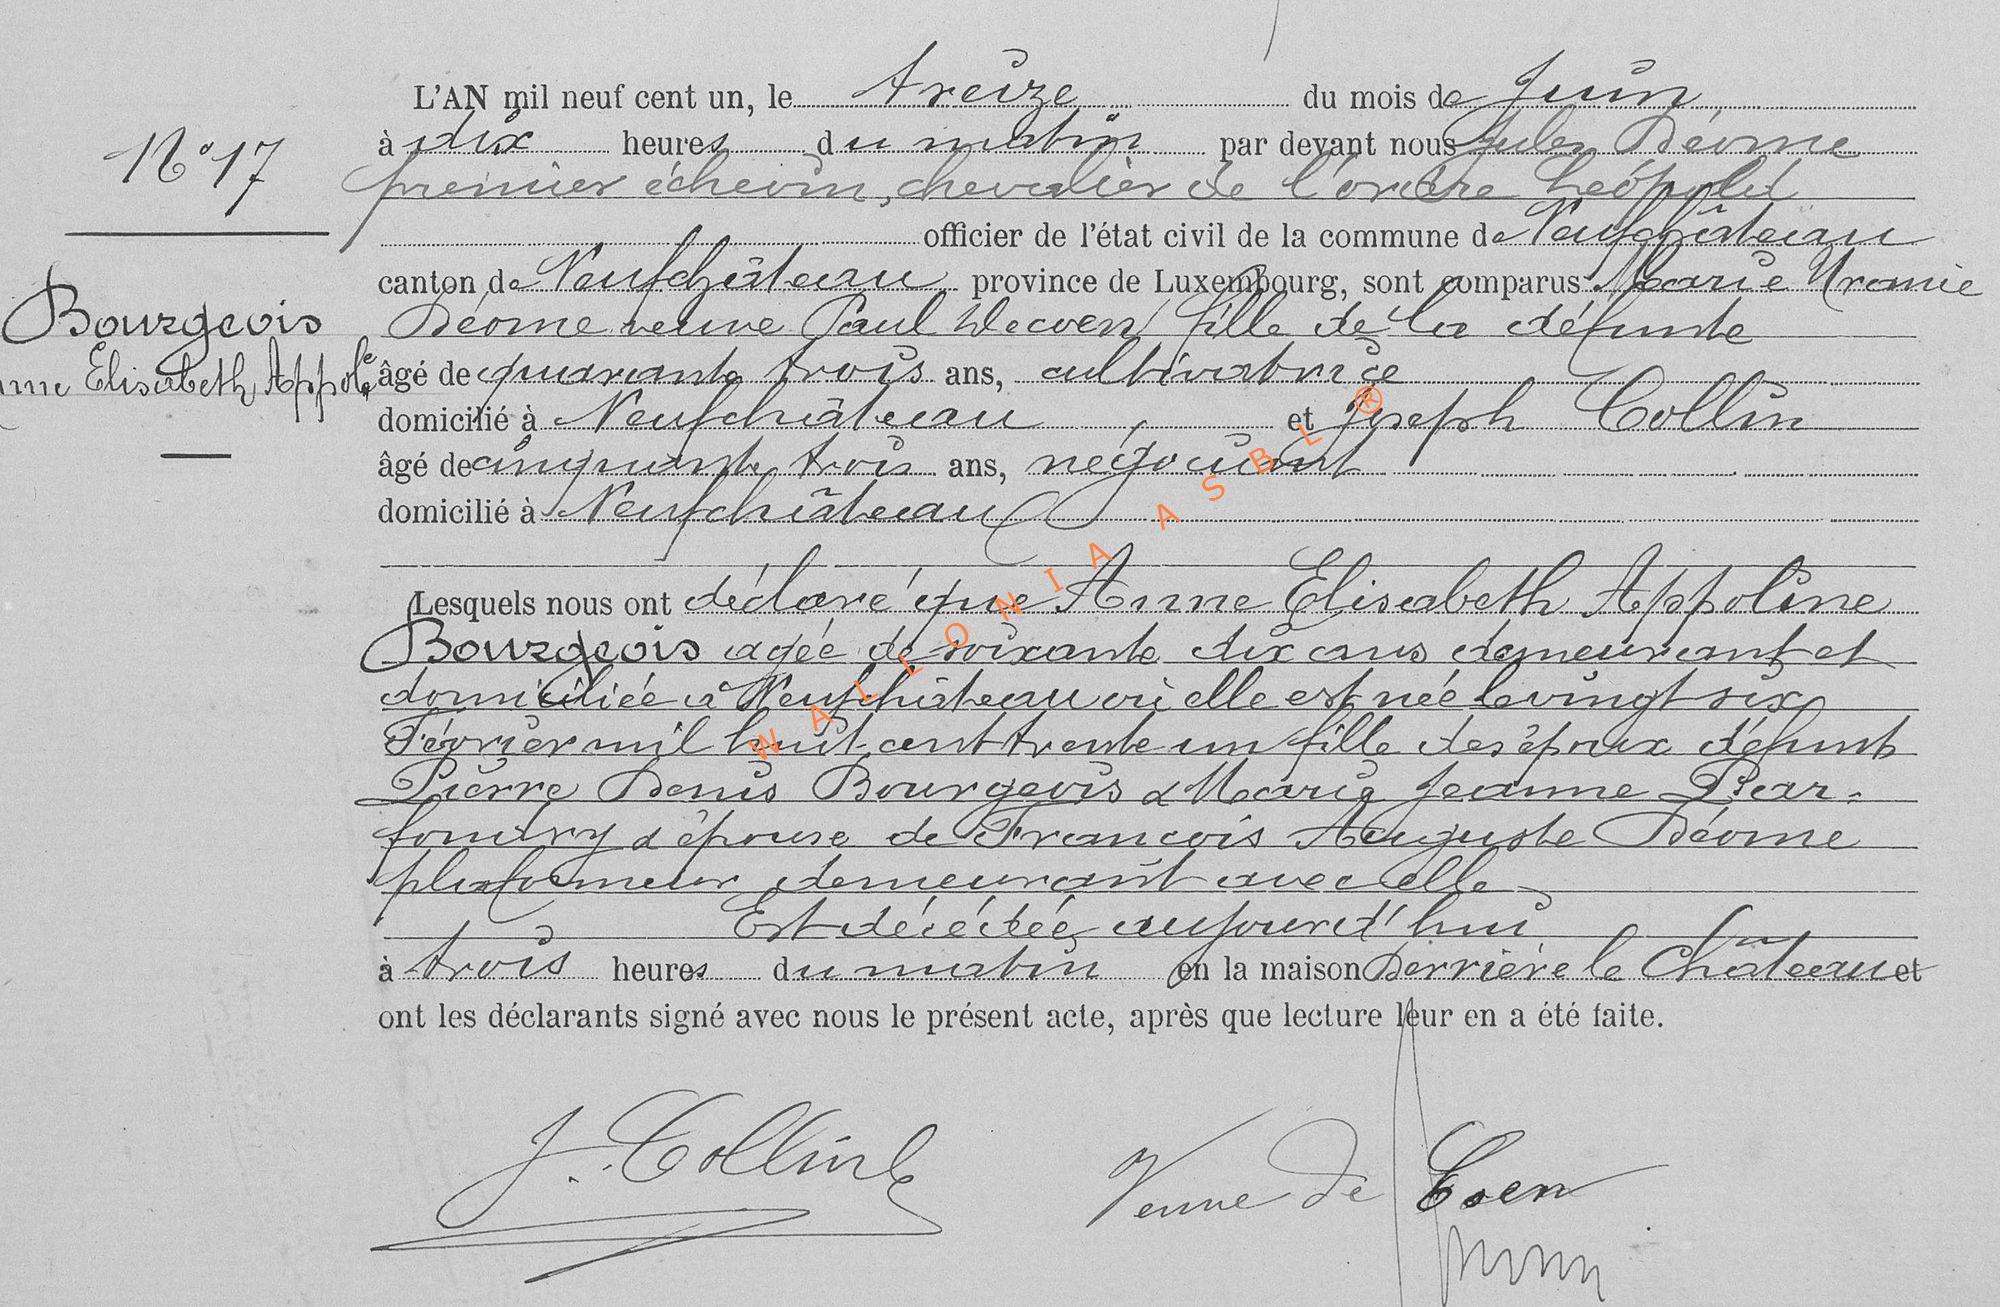 L'AN mil neuf cent un, le treize du mois de Juin
N° 17
à dix heures du matin par devant nous Jules Déome
premier échevin, chevalier de l'ordre Léopold
officier de l'état civil de la commune de Neufchâteau
canton de Neufchâteau province de Luxembourg, sont comparus Marie Uranie
Bourgeois
Déome veuve Paul Decoen, fille de la défunte
Elisabeth Appolе
âgé de quarante trois ans, cultivatrice
domicilié à Neufchâteau, et Joseph Collin
âgé de cinquante trois ans, négociant
domicilié à Neufchâteau
Lesquels nous ont déclaré que Anne Elisabeth Appoline
Bourgeois agée de soixante dix ans demeurant et
domiciliée à Neufchâteau où elle est née le vingt six
Février mil huit cent trente un fille des époux défunts
Pierre Denis Bourgeois & Marie Jeanne
& épouse de François Auguste Déome
plafonneur demeurant avec elle
Est décédée aujourd'hui
à trois heures du matin en la maison Derrière le Château et
ont les déclarants signé avec nous le présent acte, après que lecture leur en a été faite.
J. Collin
Veuve De Coen
WALLONIA ASBL ®